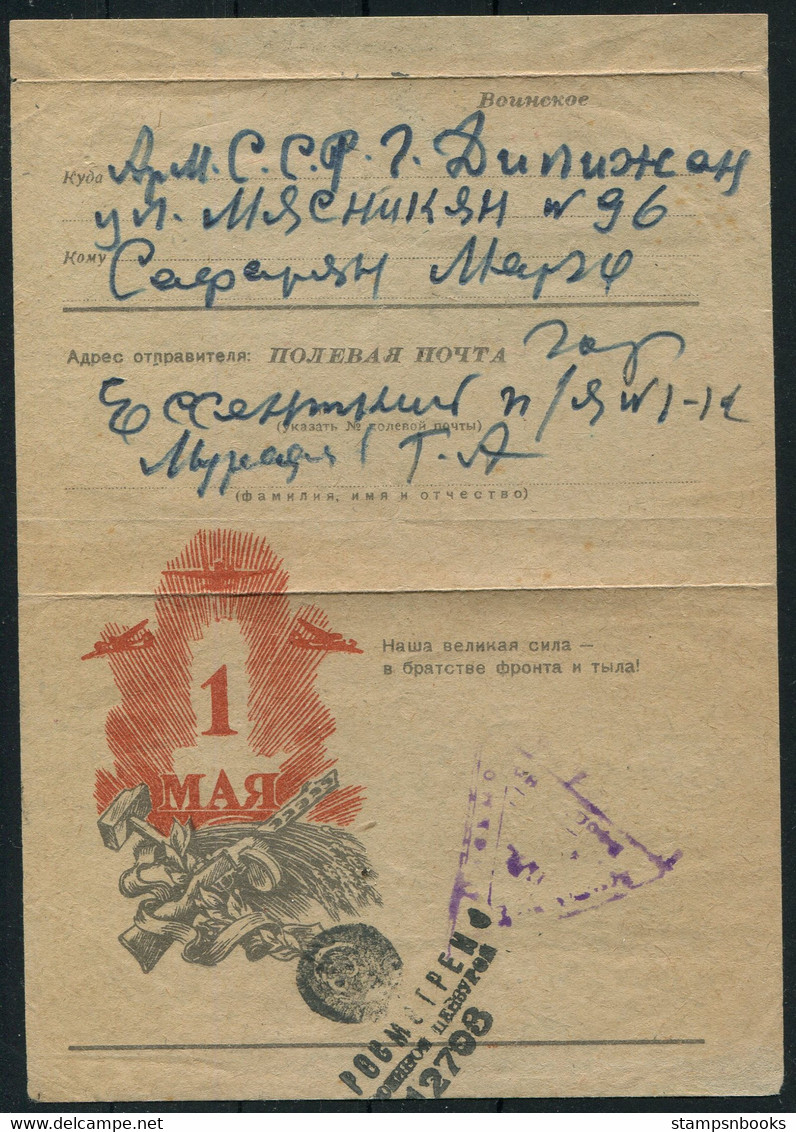 Воинское
Куда Арм. С. С. Р. г. Дилижан
ул. Мясникян № 96
Кому Сафарян Марго
Адрес отправителя: ПОЛЕВАЯ ПОЧТА гор
п/я № 1-
(указать № полевой почты)
Т. А
(фамилия, имя и отчество)
Наша великая сила —
в братстве фронта и тыла!
1
МАЯ
ПРОСМОТРЕНО
ВОЕННОЙ ЦЕНЗУРОЙ
12708
stampsnbooks
stampsnbooks.com